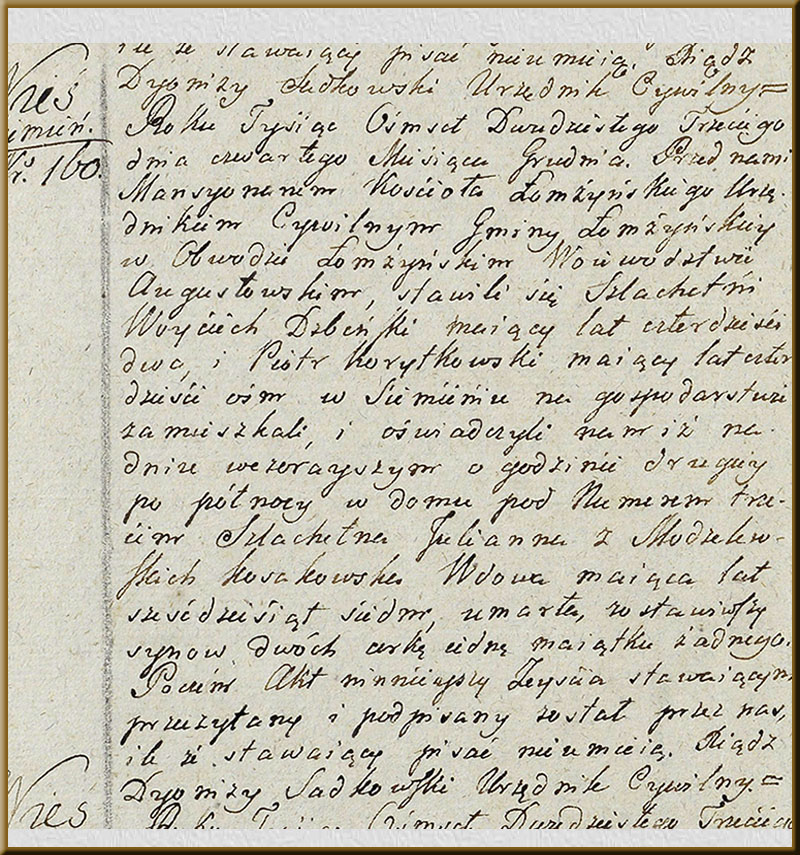 ile że stawaiący pisać nieumieią. Xiądz
Dyonizy Sadkowski Urzędnik Cywilny=
Wieś
Siemień.
Nro. 160.
Roku Tysiąc Ośmset Dwudziestego Trzeciego
dnia czwartego Miesiąca Grudnia. Przed nami
Mansyonarem Kościoła Łomżyńskiego Urzę-
dnikiem Cywilnym Gminy Łomżyńskiey
w Obwodzie Łomżyńskim Woiewództwie
Augustowskim, stawili się Szlachetni
Woyciech Dębiński maiący lat czterdzieści
dwa, i Piotr Korytkowski maiący lat czter
dzieści ośm w Siemieniu na gospodarstwie
zamieszkali, i oświadczyli nam iż na
dniu wczorayszym o godzinie drugiey
po północy w domu pod Numerem trze-
cim Szlachetna Julianna z Modzelew-
skich Kosakowska Wdowa maiąca lat
sześćdziesiąt siedm, umarła, zostawiwszy
synow dwóch corkę iednę maiątku żadnego.
Poczem Akt ninnieyszy Zeyścia stawaiącym
przeczytany i podpisany został przez nas,
ile że stawaiący pisać nieumieią. Xiądz
Dyonizy Sadkowski Urzędnik Cywilny.=
Wieś
Roku Tysiąc Ośmset Dwudziestego Trzeciego